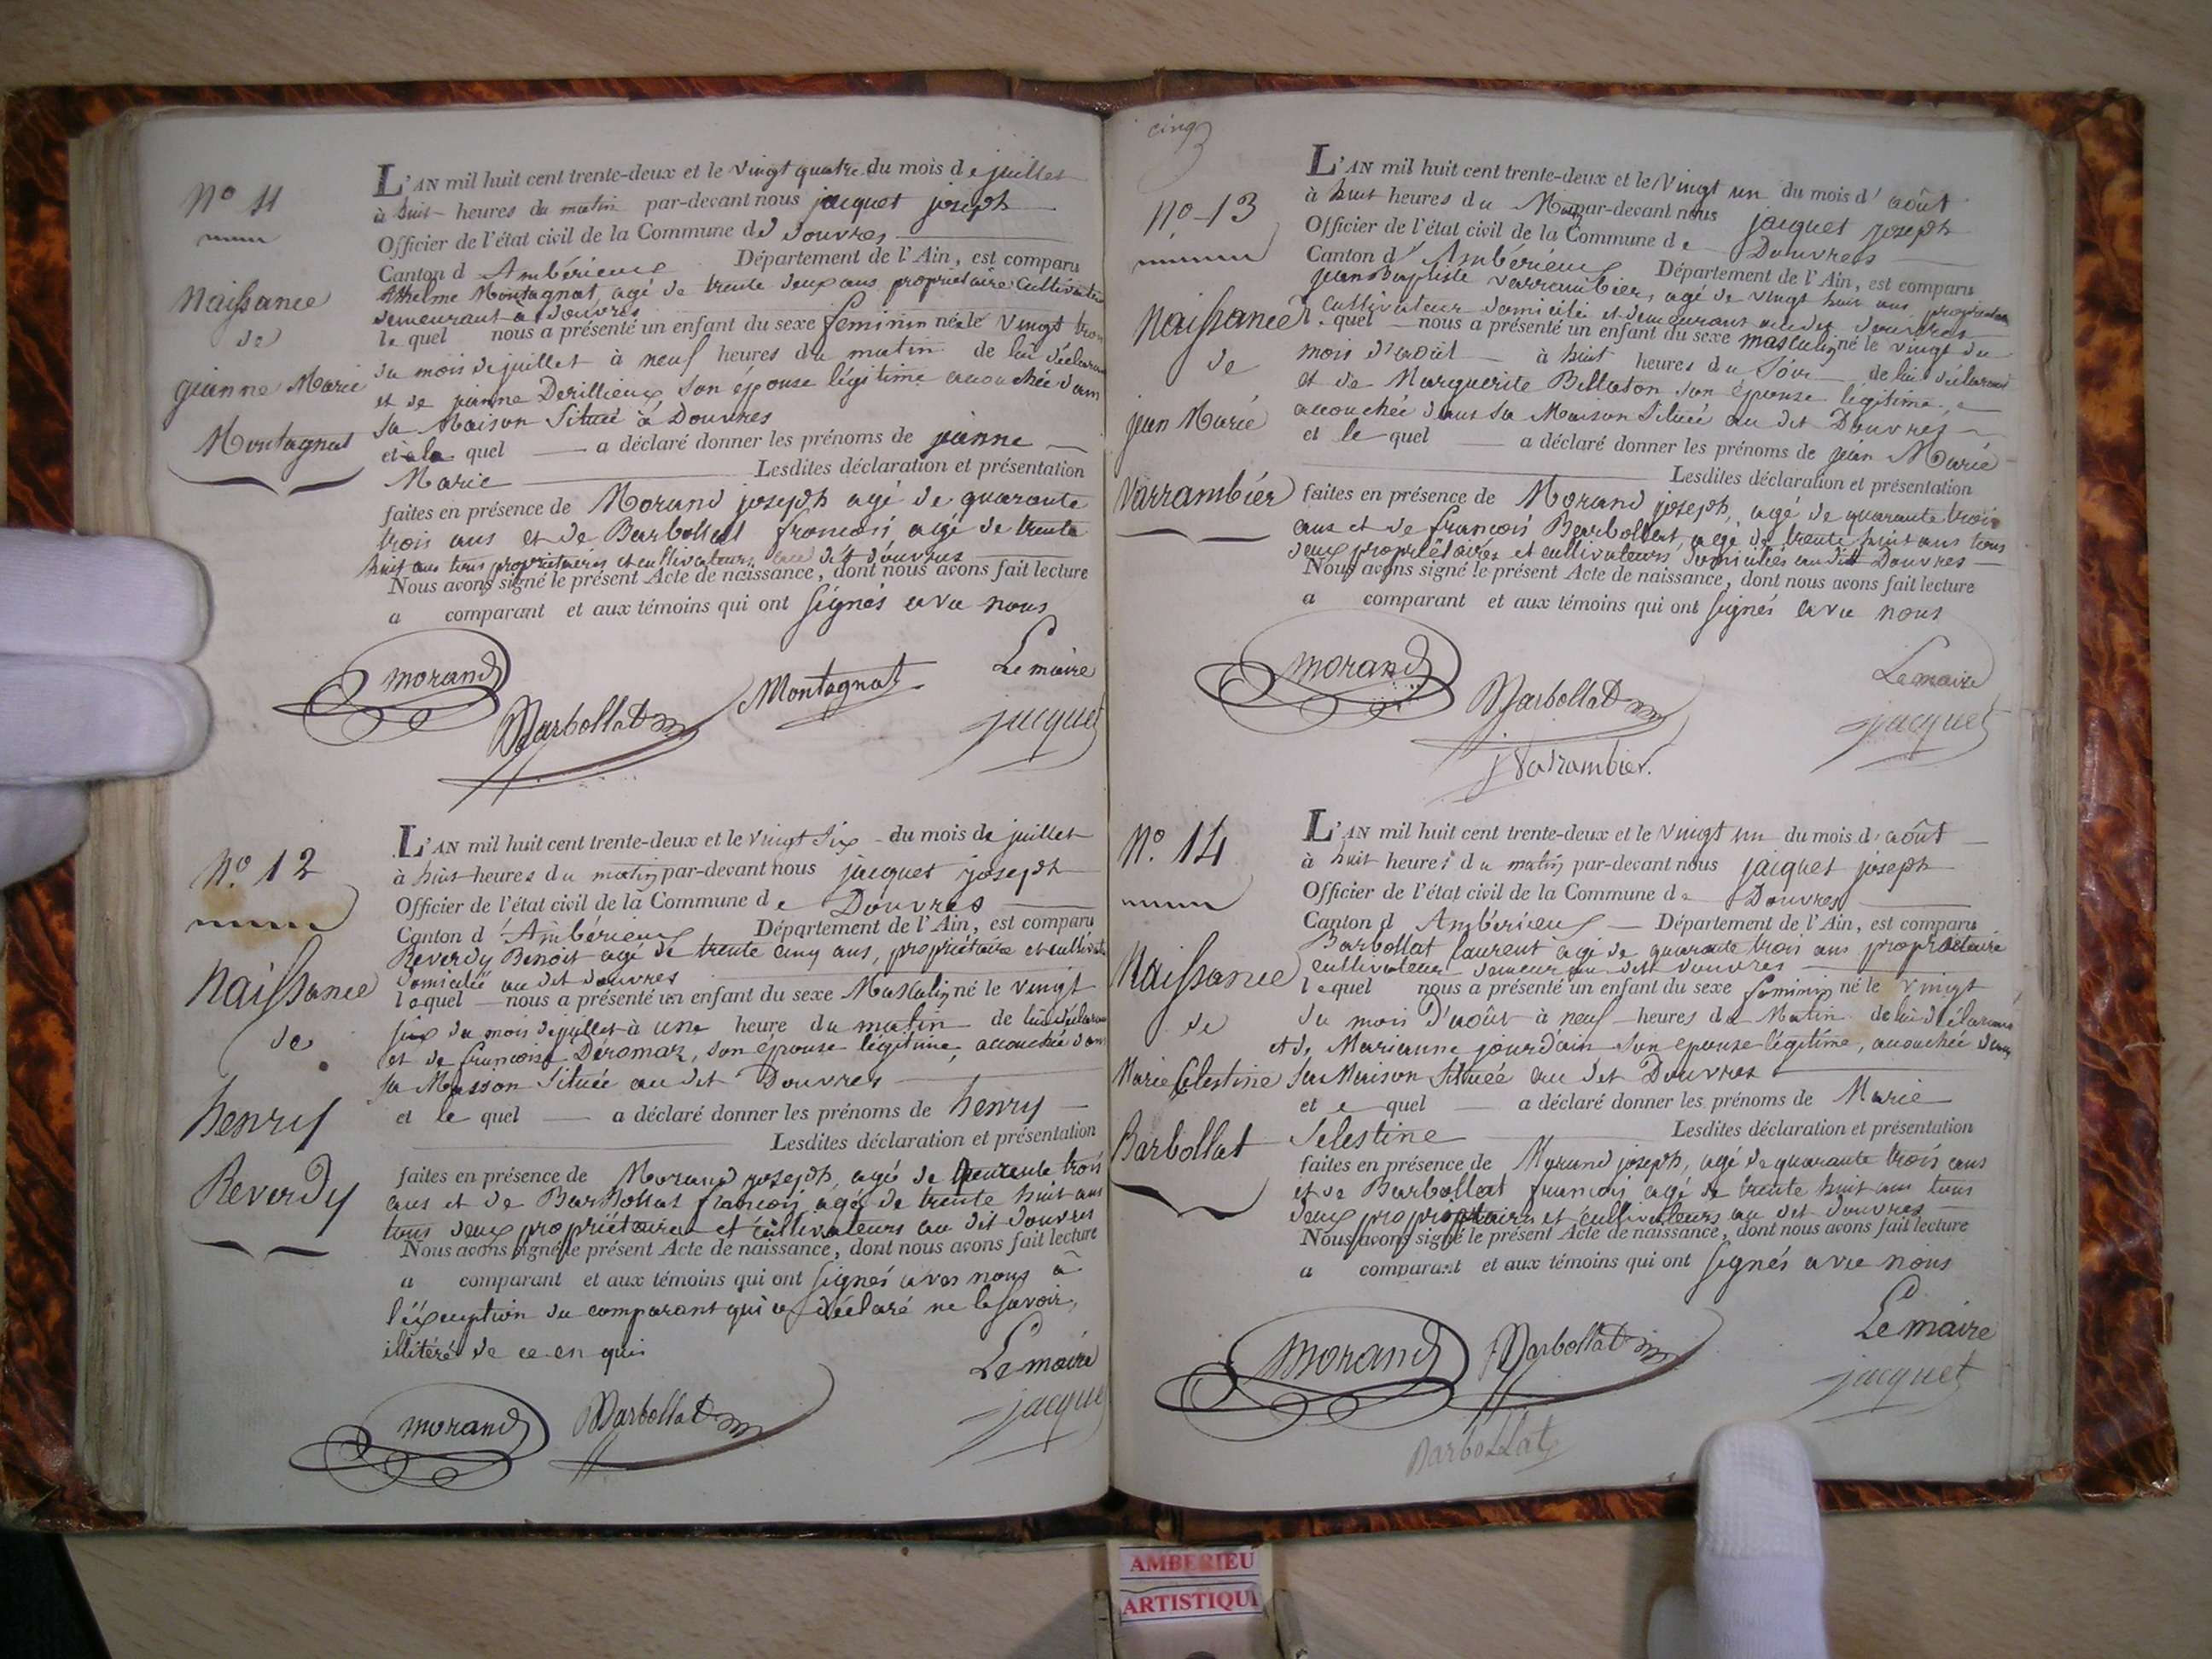 No 11
Naissance
de
jeanne Marie
Montagnat
L'AN mil huit cent trente-deux et le vingt quatre du mois de juillet
à huit heures du matin par-devant nous jacquet joseph
Officier de l'état civil de la Commune de douvres
Canton d'Ambérieux Département de l'Ain, est comparu
Anthelme Montagnat, agé de trente deux ans propriétaire Cultivateur
demeurant à douvres
le quel nous a présenté un enfant du sexe feminin né le vingt trois
du mois de juillet à neuf heures du matin de lui déclarant
et de jeanne Derillieux son épouse légitime accouchée dans
sa Maison Située à Douvres
et à la quel a déclaré donner les prénoms de jeanne
Marie Lesdites déclaration et présentation
faites en présence de Morand joseph agé de quarante
trois ans et de Barbollat francois, agé de trente
huit ans tous propriétaires et cultivateurs au dit douvres
Nous avons signé le présent Acte de naissance, dont nous avons fait lecture
a comparant et aux témoins qui ont signés avec nous
morand
Barbollat
Montagnat
Le maire
jacquet
No. 12
Naissance
de
henry
Reverdy
L'AN mil huit cent trente-deux et le vingt Six du mois de juillet
à huit heures du matin par-devant nous jacquet joseph
Officier de l'état civil de la Commune de Douvres
Canton d'Ambérieux Département de l'Ain, est comparu
Reverdy Benoit agé de trente cinq ans, propriétaire et cultivat
domicilié au dit douvres
lequel nous a présenté un enfant du sexe Masculin né le vingt
six du mois de juillet à une heure du matin de lui déclarant
et de francoise Déromaz, son épouse légitime, accouchée dans
sa Maison Située au dit Douvres
et le quel a déclaré donner les prénoms de henry
Lesdites déclaration et présentation
faites en présence de Morand joseph, agé de quarante trois
ans et de Barbollat francois agé de trente huit ans
tous deux propriétaires et cultivateurs au dit douvres
Nous avons signé le présent Acte de naissance, dont nous avons fait lecture
a comparant et aux témoins qui ont signés avec nous à
l'éxception du comparant qui a déclaré ne le savoir,
illitéré de ce en quis
Le maire
morand
Barbollat
jacquet
cinq
No 13
Naissance
de
jean Marie
Varrambier
L'AN mil huit cent trente-deux et le vingt un du mois d'août
à huit heures du Matin par-devant nous jacquet joseph
Officier de l'état civil de la Commune de Douvres
Canton d'Ambérieux Département de l'Ain, est comparu
jean Baptiste Varrambier, agé de vingt huit ans, propriétaire
cultivateur domicilié et demeurant au dit douvres
le quel nous a présenté un enfant du sexe masculin né le vingt du
mois d'août à huit heures du Soir de lui déclarant
et de Marguerite Billaton son épouse légitime,
accouchée dans sa Maison Située au dit Douvres
et le quel a déclaré donner les prénoms de jean Marie
Lesdites déclaration et présentation
faites en présence de Morand joseph, agé de quarante trois
ans et de francois Barbollat, agé de trente huit ans tous
deux propriétaires et cultivateurs domiciliés au dit Douvres
Nous avons signé le présent Acte de naissance, dont nous avons fait lecture
a comparant et aux témoins qui ont signés avec nous
morand
Barbollat
j Varambier.
Le maire
jacquet
No. 14
Naissance
de
Marie Célestine
Barbollat
L'AN mil huit cent trente-deux et le vingt un du mois d'août
à huit heures du matin par-devant nous jacquet joseph
Officier de l'état civil de la Commune de Douvres
Canton d Ambérieux Département de l'Ain, est comparu
Barbollat laurent agé de quarante trois ans propriétaire
cultivateur demeur au dit douvres
lequel nous a présenté un enfant du sexe feminin né le vingt
du mois D'août à neuf heures du Matin de lui déclarant
et de Marianne jourdain son épouse légitime, accouchée dans
sa Maison Située au dit Douvres
et e quel a déclaré donner les prénoms de Marie
Selestine Lesdites déclaration et présentation
faites en présence de Morand joseph, agé de quarante trois ans
et de Barbollat francois agé de trente huit ans tous
deux propriétaires et cultivateurs au dit douvres
Nous avons signé le présent Acte de naissance, dont nous avons fait lecture
a comparant et aux témoins qui ont signés avec nous
morand
Barbollat
Le maire
jacquet
Barbollat
AMBERIEU
ARTISTIQU